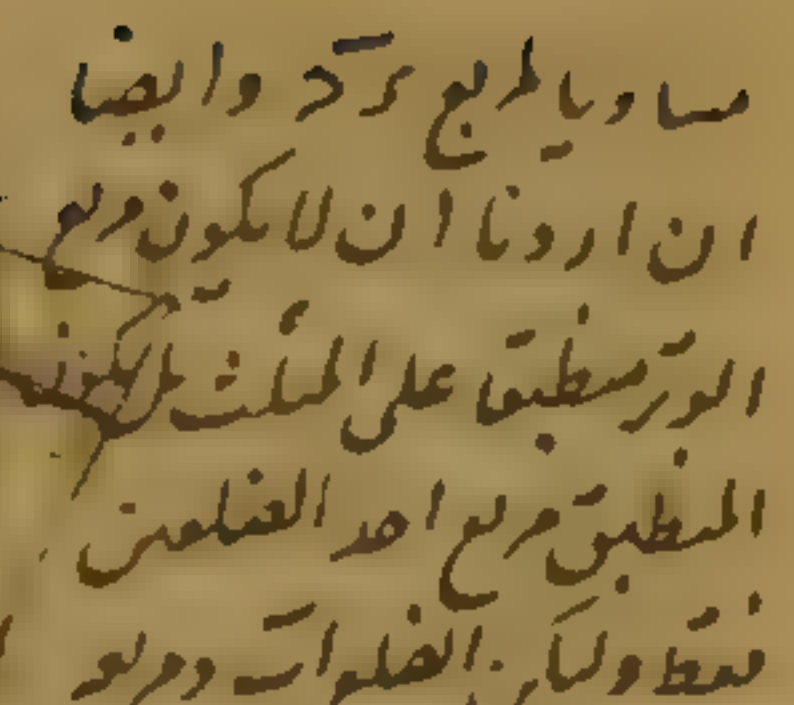 مساويا لمربع ترك وايضا
ان اردنا ان لا يكون مربع
الوتر منطبقا على المثلث بل يكون
المنطبق مربع احد الضلعين
فقط وليكن الضلع ات ومربعه